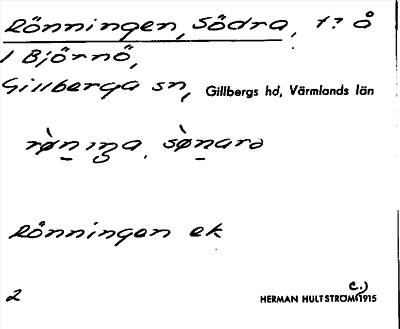 Rönningen, Södra, 1? å
1 Björnö,
Gillberga sn, Gillbergs hd, Värmlands län
rø̀nɩŋa, sø̀narə
Rönningen ek
2 HERMAN HULTSTRÖM (c.) 1915